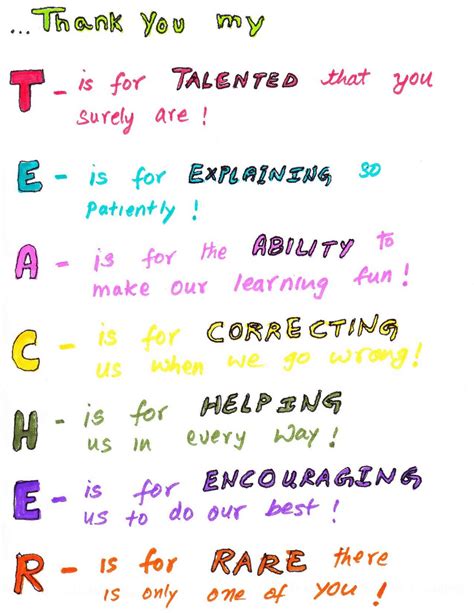 ...Thank You my
T - is for TALENTED that you
surely are!
E - is for EXPLAINING so
Patiently!
A - is for the ABILITY to
make our learning fun!
C - is for CORRECTING
us when we go wrong!
H - is for HELPING
us in every way!
E - is for ENCOURAGING
us to do our best!
R - is for RARE there
is only one of you!